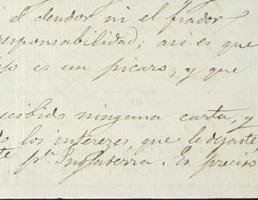 el deudor ni el fiador
responsabilidad; asi es que
es un pícaro, y que
recibido ninguna carta, y
los intereses que le dejaste
pª Inglaterra. Es preciso